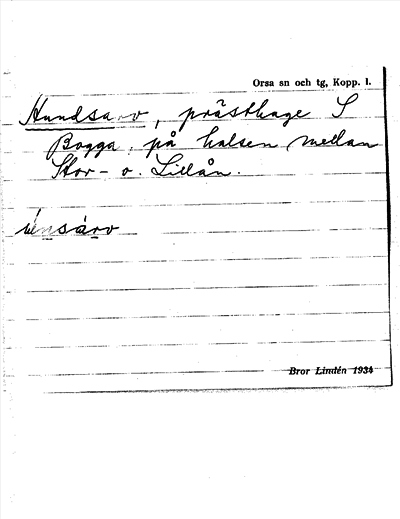 Orsa sn och tg, Kopp. l.
Hundsarv, prästhage S
Bogga, på halsen mellan
Stor- o. Lillån.
Bror Lindén 1934